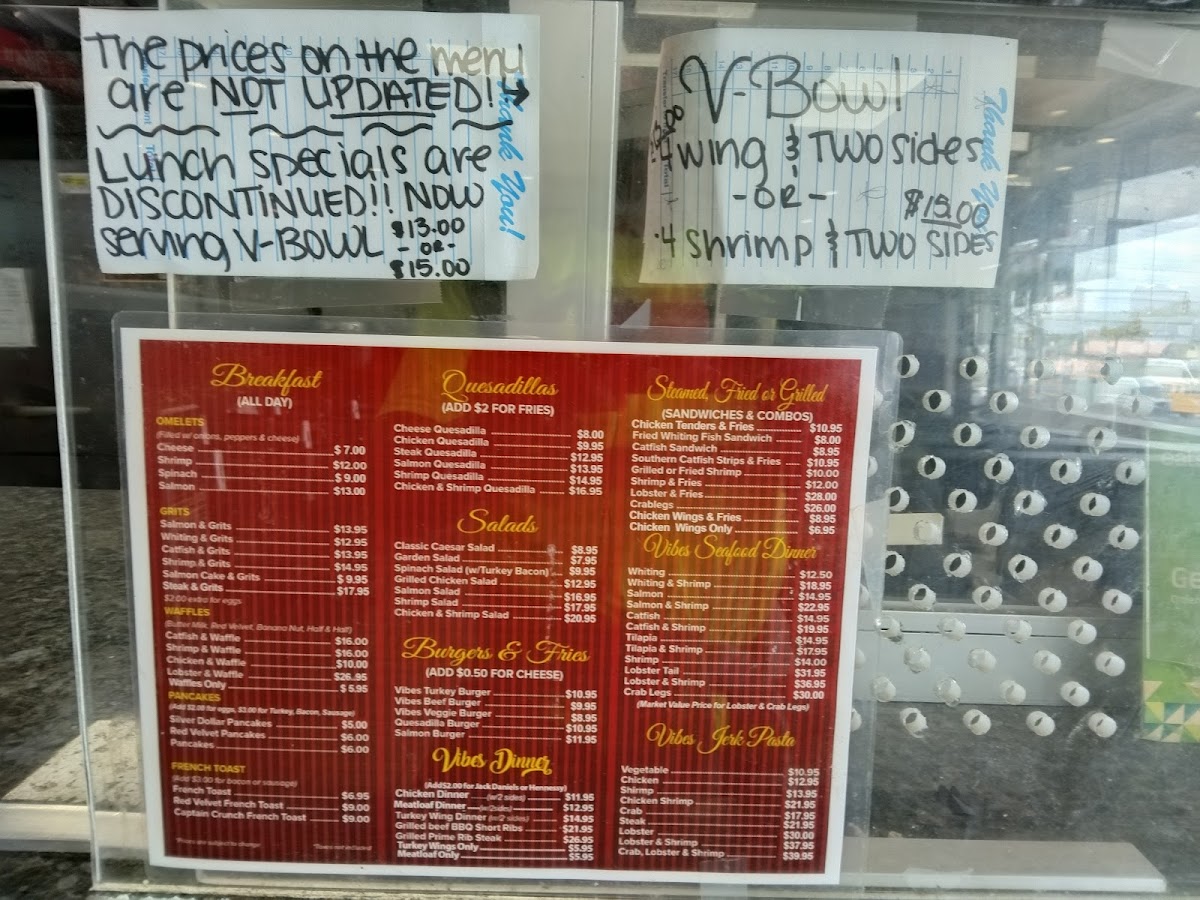 The prices on the menu
are NOT UPDATED! →
Lunch specials are
DISCONTINUED!! NOW
serving V-BOWL $13.00
- OR -
$15.00
Thank You!
V-Bowl!
4 wing & TWO sides
- OR -
$15.00
·4 shrimp & TWO SIDES
Thank You
Breakfast
(ALL DAY)
OMELETS
(Filled w/ onions, peppers & cheese)
Cheese $ 7.00
Shrimp $12.00
Spinach $ 9.00
Salmon $13.00
GRITS
Salmon & Grits $13.95
Whiting & Grits $12.95
Catfish & Grits $13.95
Shrimp & Grits $14.95
Salmon Cake & Grits $ 9.95
Steak & Grits $17.95
$2.00 extra for eggs
WAFFLES
(Butter Milk, Red Velvet, Banana Nut, Half & Half)
Catfish & Waffle $16.00
Shrimp & Waffle $16.00
Chicken & Waffle $10.00
Lobster & Waffle $26.95
Waffles Only $ 6.95
PANCAKES
(Add $2.00 for eggs, $3.00 for Turkey, Bacon, Sausage)
Silver Dollar Pancakes $5.00
Red Velvet Pancakes $6.00
Pancakes $6.00
FRENCH TOAST
(Add $3.00 for bacon or sausage)
French Toast $6.95
Red Velvet French Toast $9.00
Captain Crunch French Toast $9.00
*Prices are subject to change *Taxes not included
Quesadillas
(ADD $2 FOR FRIES)
Cheese Quesadilla $8.00
Chicken Quesadilla $9.95
Steak Quesadilla $12.95
Salmon Quesadilla $13.95
Shrimp Quesadilla $14.95
Chicken & Shrimp Quesadilla $16.95
Salads
Classic Caesar Salad $8.95
Garden Salad $7.95
Spinach Salad (w/Turkey Bacon) $9.95
Grilled Chicken Salad $12.95
Salmon Salad $16.95
Shrimp Salad $17.95
Chicken & Shrimp Salad $20.95
Burgers & Fries
(ADD $0.50 FOR CHEESE)
Vibes Turkey Burger $10.95
Vibes Beef Burger $9.95
Vibes Veggie Burger $8.95
Quesadilla Burger $10.95
Salmon Burger $11.95
Vibes Dinner
(Add$2.00 for Jack Daniels or Hennessy)
Chicken Dinner (w/2 sides) $11.95
Meatloaf Dinner (w/2sides) $12.95
Turkey Wing Dinner (w/2 sides) $14.95
Grilled beef BBQ Short Ribs $21.95
Grilled Prime Rib Steak $26.95
Turkey Wings Only $5.95
Meatloaf Only $5.95
Steamed, Fried or Grilled
(SANDWICHES & COMBOS)
Chicken Tenders & Fries $10.95
Fried Whiting Fish Sandwich $8.00
Catfish Sandwich $8.95
Southern Catfish Strips & Fries $10.95
Grilled or Fried Shrimp $10.00
Shrimp & Fries $12.00
Lobster & Fries $28.00
Crablegs $26.00
Chicken Wings & Fries $8.95
Chicken Wings Only $6.95
Vibes Seafood Dinner
Whiting $12.50
Whiting & Shrimp $18.95
Salmon $14.95
Salmon & Shrimp $22.95
Catfish $14.95
Catfish & Shrimp $19.95
Tilapia $14.95
Tilapia & Shrimp $17.95
Shrimp $14.00
Lobster Tail $31.95
Lobster & Shrimp $36.95
Crab Legs $30.00
(Market Value Price for Lobster & Crab Legs)
Vibes Jerk Pasta
Vegetable $10.95
Chicken $12.95
Shirmp $13.95
Chicken Shrimp $21.95
Crab $17.95
Steak $21.95
Lobster $30.00
Lobster & Shrimp $37.95
Crab, Lobster & Shrimp $39.95